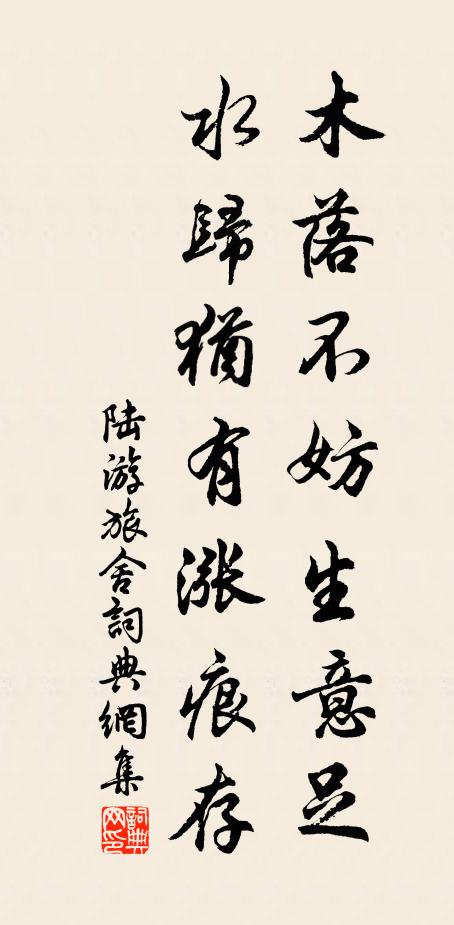 木落不妨生意足
水歸猶有漲痕存
陆游旅舍詞典網集
詞典
网印